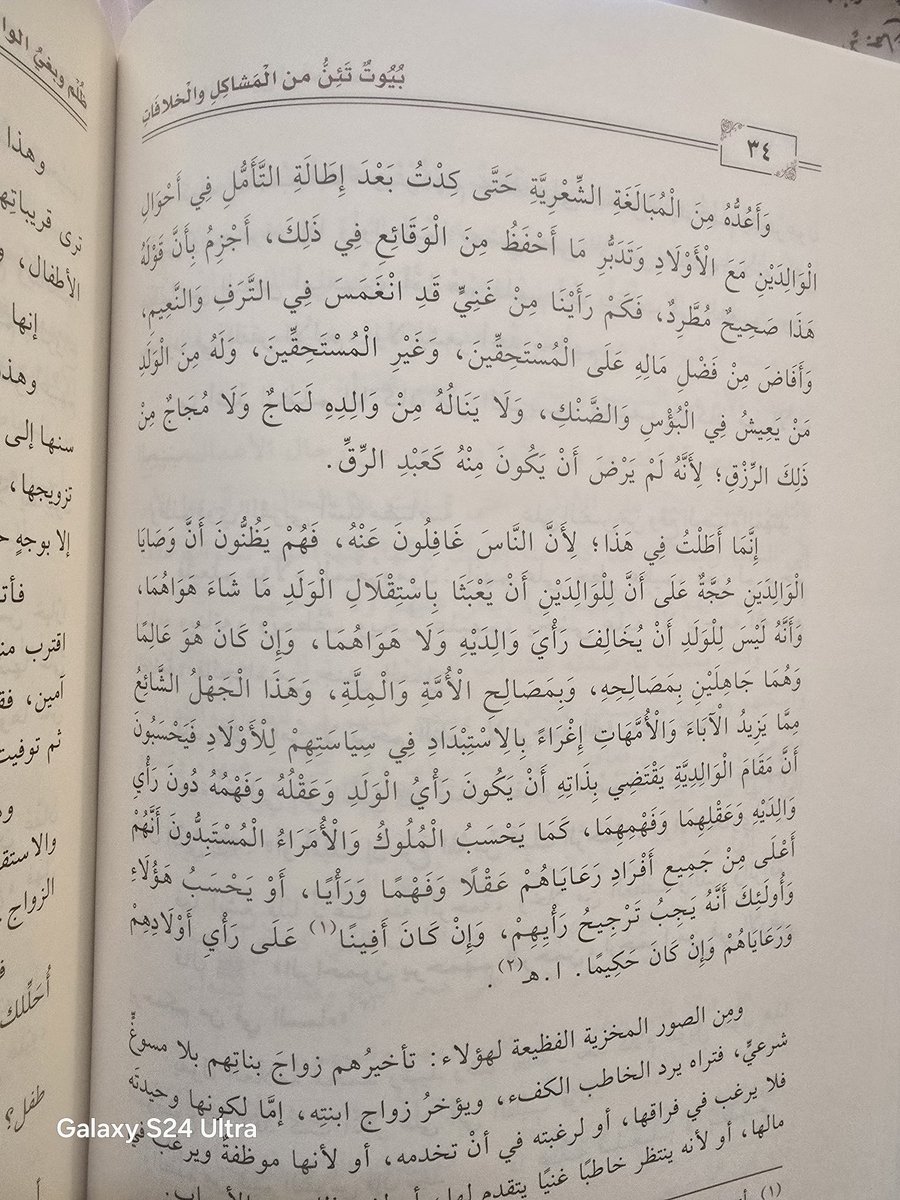 بُيُوتٌ تَئِنُّ من الْمَشاكِلِ والْخلافَاتِ
٣٤
وَأَعُدُّهُ مِنَ الْمُبَالَغَةِ الشِّعْرِيَّةِ حَتَّى كِدْتُ بَعْدَ إِطَالَةِ التَّأَمُّلِ فِي أَحْوَالِ
الْوَالِدَيْنِ مَعَ الْأَوْلَادِ وَتَدَبُّرِ مَا أَحْفَظُ مِنَ الْوَقَائِعِ فِي ذَلِكَ، أَجْزِمُ بِأَنَّ قَوْلَهُ
هَذَا صَحِيحٌ مُطَّرِدٌ، فَكَمْ رَأَيْنَا مِنْ غَنِيٍّ قَدِ انْغَمَسَ فِي التَّرَفِ وَالنَّعِيمِ،
وَأَفَاضَ مِنْ فَضْلِ مَالِهِ عَلَى الْمُسْتَحِقِّينَ، وَغَيْرِ الْمُسْتَحِقِّينَ، وَلَهُ مِنَ الْوَلَدِ
مَنْ يَعِيشُ فِي الْبُؤْسِ وَالضَّنْكِ، وَلَا يَنَالُهُ مِنْ وَالِدِهِ لَمَاجٌ وَلَا مُجَاجٌ مِنْ
ذَلِكَ الرِّزْقِ؛ لِأَنَّهُ لَمْ يَرْضَ أَنْ يَكُونَ مِنْهُ كَعَبْدِ الرِّقِّ.
إِنَّمَا أَطَلْتُ فِي هَذَا؛ لِأَنَّ النَّاسَ غَافِلُونَ عَنْهُ، فَهُمْ يَظُنُّونَ أَنَّ وَصَايَا
الْوَالِدَيَنِ حُجَّةٌ عَلَى أَنَّ لِلْوَالِدَيْنِ أَنْ يَعْبَثَا بِاسْتِقْلَالِ الْوَلَدِ مَا شَاءَ هَوَاهُمَا،
وَأَنَّهُ لَيْسَ لِلْوَلَدِ أَنْ يُخَالِفَ رَأْيَ وَالِدَيْهِ وَلَا هَوَاهُمَا، وَإِنْ كَانَ هُوَ عَالِمًا
وَهُمَا جَاهِلَيْنِ بِمَصَالِحِهِ، وَبِمَصَالِحِ الْأُمَّةِ وَالْمِلَّةِ، وَهَذَا الْجَهْلُ الشَّائِعُ
مِمَّا يَزِيدُ الْآبَاءَ وَالْأُمَّهَاتِ إِغْرَاءً بِالِاسْتِبْدَادِ فِي سِيَاسَتِهِمْ لِلْأَوْلَادِ فَيَحْسَبُونَ
أَنَّ مَقَامَ الْوَالِدِيَّةِ يَقْتَضِي بِذَاتِهِ أَنْ يَكُونَ رَأْيُ الْوَلَدِ وَعَقْلُهُ وَفَهْمُهُ دُونَ رَأْيِ
وَالِدَيْهِ وَعَقْلِهِمَا وَفَهْمِهِمَا، كَمَا يَحْسَبُ الْمُلُوكُ وَالْأُمَرَاءُ الْمُسْتَبِدُّونَ أَنَّهُمْ
أَعْلَى مِنْ جَمِيعِ أَفْرَادِ رَعَايَاهُمْ عَقْلًا وَفَهْمًا وَرَأْيًا، أَوْ يَحْسَبُ هَؤُلَاءِ
وَأُولَئِكَ أَنَّهُ يَجِبُ تَرْجِيحُ رَأْيِهِمْ، وَإِنْ كَانَ أَفِينًا(١) عَلَى رَأْيِ أَوْلَادِهِمْ
وَرَعَايَاهُمْ وَإِنْ كَانَ حَكِيمًا. ا.هـ(٢).
ومِن الصور المخزية الفظيعة لهؤلاء: تأخيرُهم زواجَ بناتِهم بلا مسوغٍّ
شرعيٍّ، فتراه يرد الخاطب الكفء، ويؤخرُ زواج ابنتِه، إمَّا لكونها وحيدتَه
فلا يرغب في فراقها، أو لرغبته في أنْ تخدمه، أو لأنها موظفةٌ ويرغب في
مالها، أو لأنه ينتظر خاطبًا غنيًا يتقدم لها،
(١)
ظُلْم وبغيُ
وهذا
ترى قريباتِه
الأطفال،
إنها
وهذ
سنها إلى
تزويجها،
إلا بوجهٍ
فأت
اقترب من
آمين، فق
ثم توفيت
والاستق
الزواج
أُحَلِّلك
طفل؟
Galaxy S24 Ultra